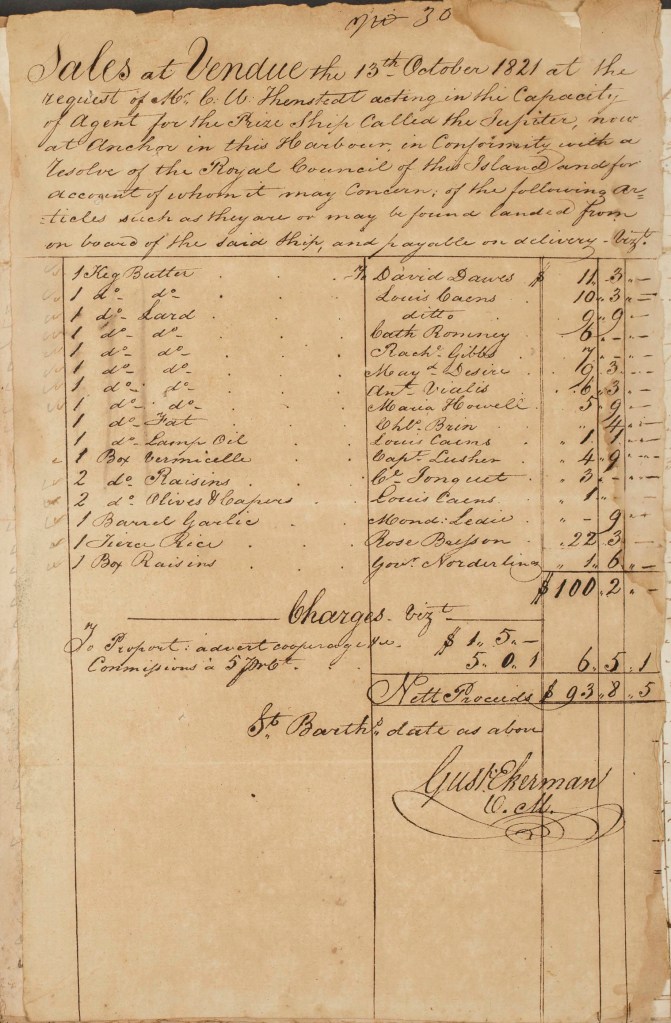 No 30
Sales at Vendue the 13th October 1821 at the
request of Mr. C. U. Thenstedt acting in the Capacity
of Agent for the Prize Ship Called the Jupiter, now
at Anchor in this Harbour, in Conformity with a
resolve of the Royal Council of this Island and for
account of whom it may Concern; of the following Ar-
-ticles such as they are or may be found landed from
on board of the said Ship, and payable on delivery - Vizt.
1 Keg Butter David Dawes $ 11 " 3 " -
1 do - do - Louis Caens 10 " 3 " -
1 do - Lard ditto 9 " 9 -
1 do - do - Cath Romney 6 " - " -
1 do - do - Rachl. Gibbs 7 " - " -
1 do - do - May d Desire 9 3 " -
1 do - do - Ant. Vialis 6 " 3 " -
1 do - do - Maria Howell 5 " 9 " -
1 do - Fat Chs. Brin " 4 " -
1 do - Lamp Oil Louis Caens " 1 " 1 " -
1 Box Vermicelle Capt. Lusher " 4 " 9 " -
2 do. Raisins Ce. Jonquet " 3 " - " -
2 do. Olives & Capers Louis Caens " 1 " - -
1 Barrel Garlic Mond: Ledie " - " 9 -
1 Tierce Rice Rose Brisson " 22 " 3 -
1 Box Raisins Govr. Norderling " 1 " 6 " -
$ 100 " 2 " -
Charges - Vizt
To Proport: advert cooperage &c. $ 1 " 5 " -
Commissions à 5 pr Ct. 5 " 0 " 1 6 " 5 " 1
Nett Proceeds $ 93 " 8 " 5
St. Barths. date as above
Gust. Ekerman
V. M.